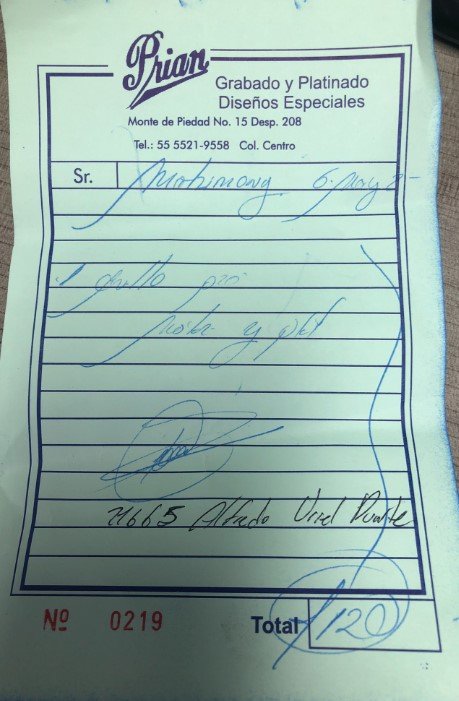 Prian
Grabado y Platinado
Diseños Especiales
Monte de Piedad No. 15 Desp. 208
Tel.: 55 5521-9558 Col. Centro
Sr.
1 anillo
y
71665 Alfredo Uriel Duarte
Nº 0219
Total $120